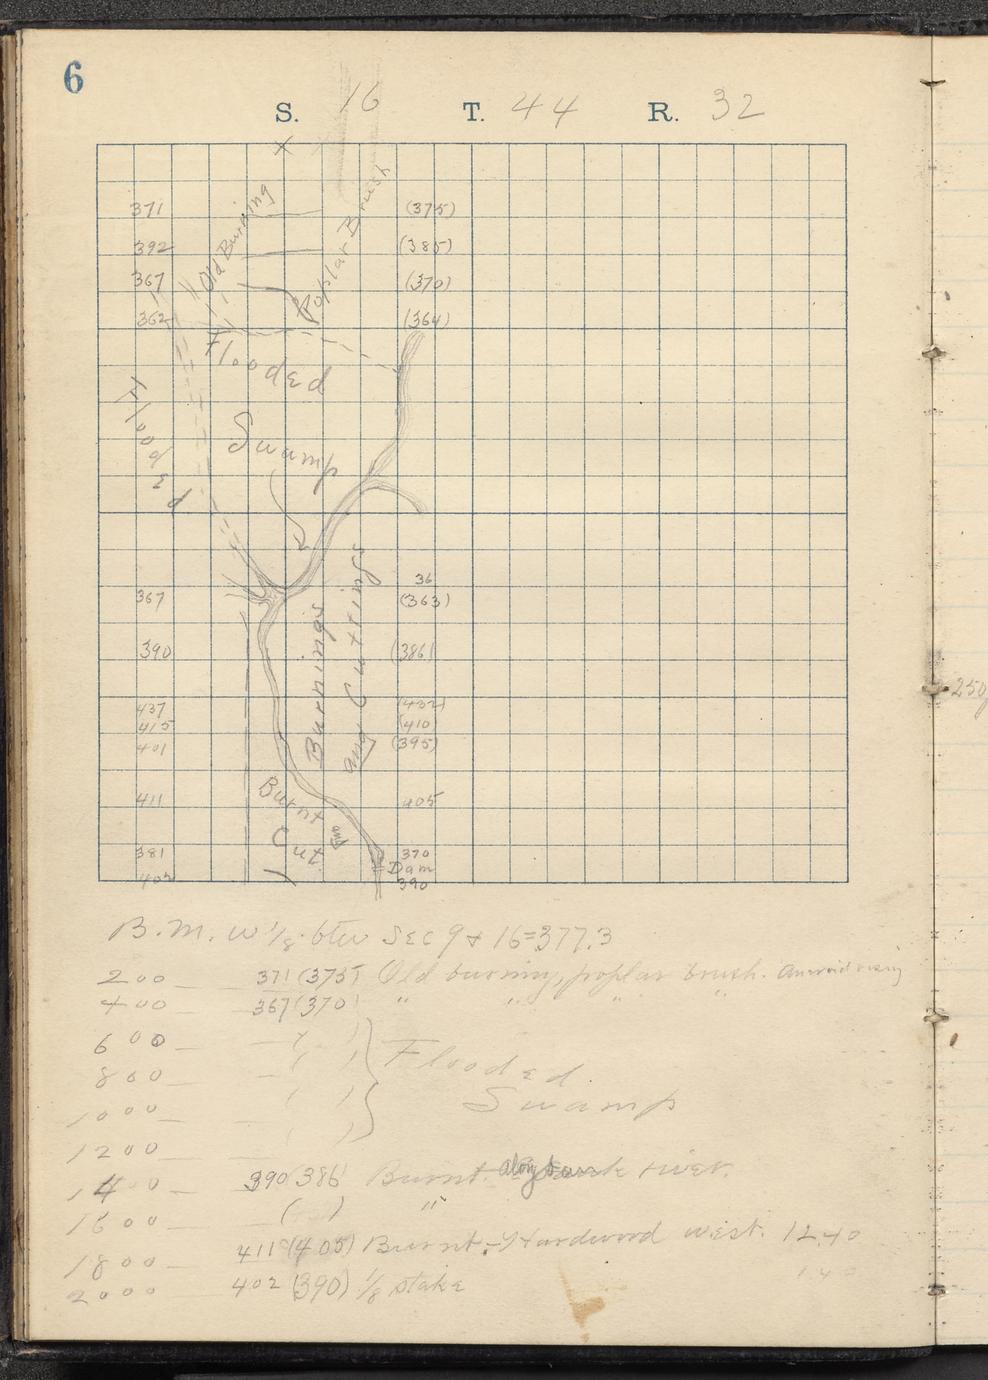 6
S. 16 T. 44 R. 32
371 (375)
392 (385)
367 (370)
362 (364)
Old Burning
Poplar Brush
Flooded
Swamp
Flooded
36
367 (363)
390 (386)
437 (432)
415 (410)
401 (395)
Burnings
and Cuttings
411 405
Burnt
and
Cut
381 370
Dam
402 390
B.M. W 1/8 btw Sec 9 & 16 = 377.3
200 371 (375) Old burning, poplar brush. Aneroid rising
400 367 (370) " " " "
600 ( )
800 ( ) Flooded
1000 ( ) Swamp
1200 ( )
1400 390 (386) Burnt. along bank river.
1600 ( ) "
1800 411 (405) Burnt - Hardwood west. 12.40
1 40
2000 402 (390) 1/8 stake
250